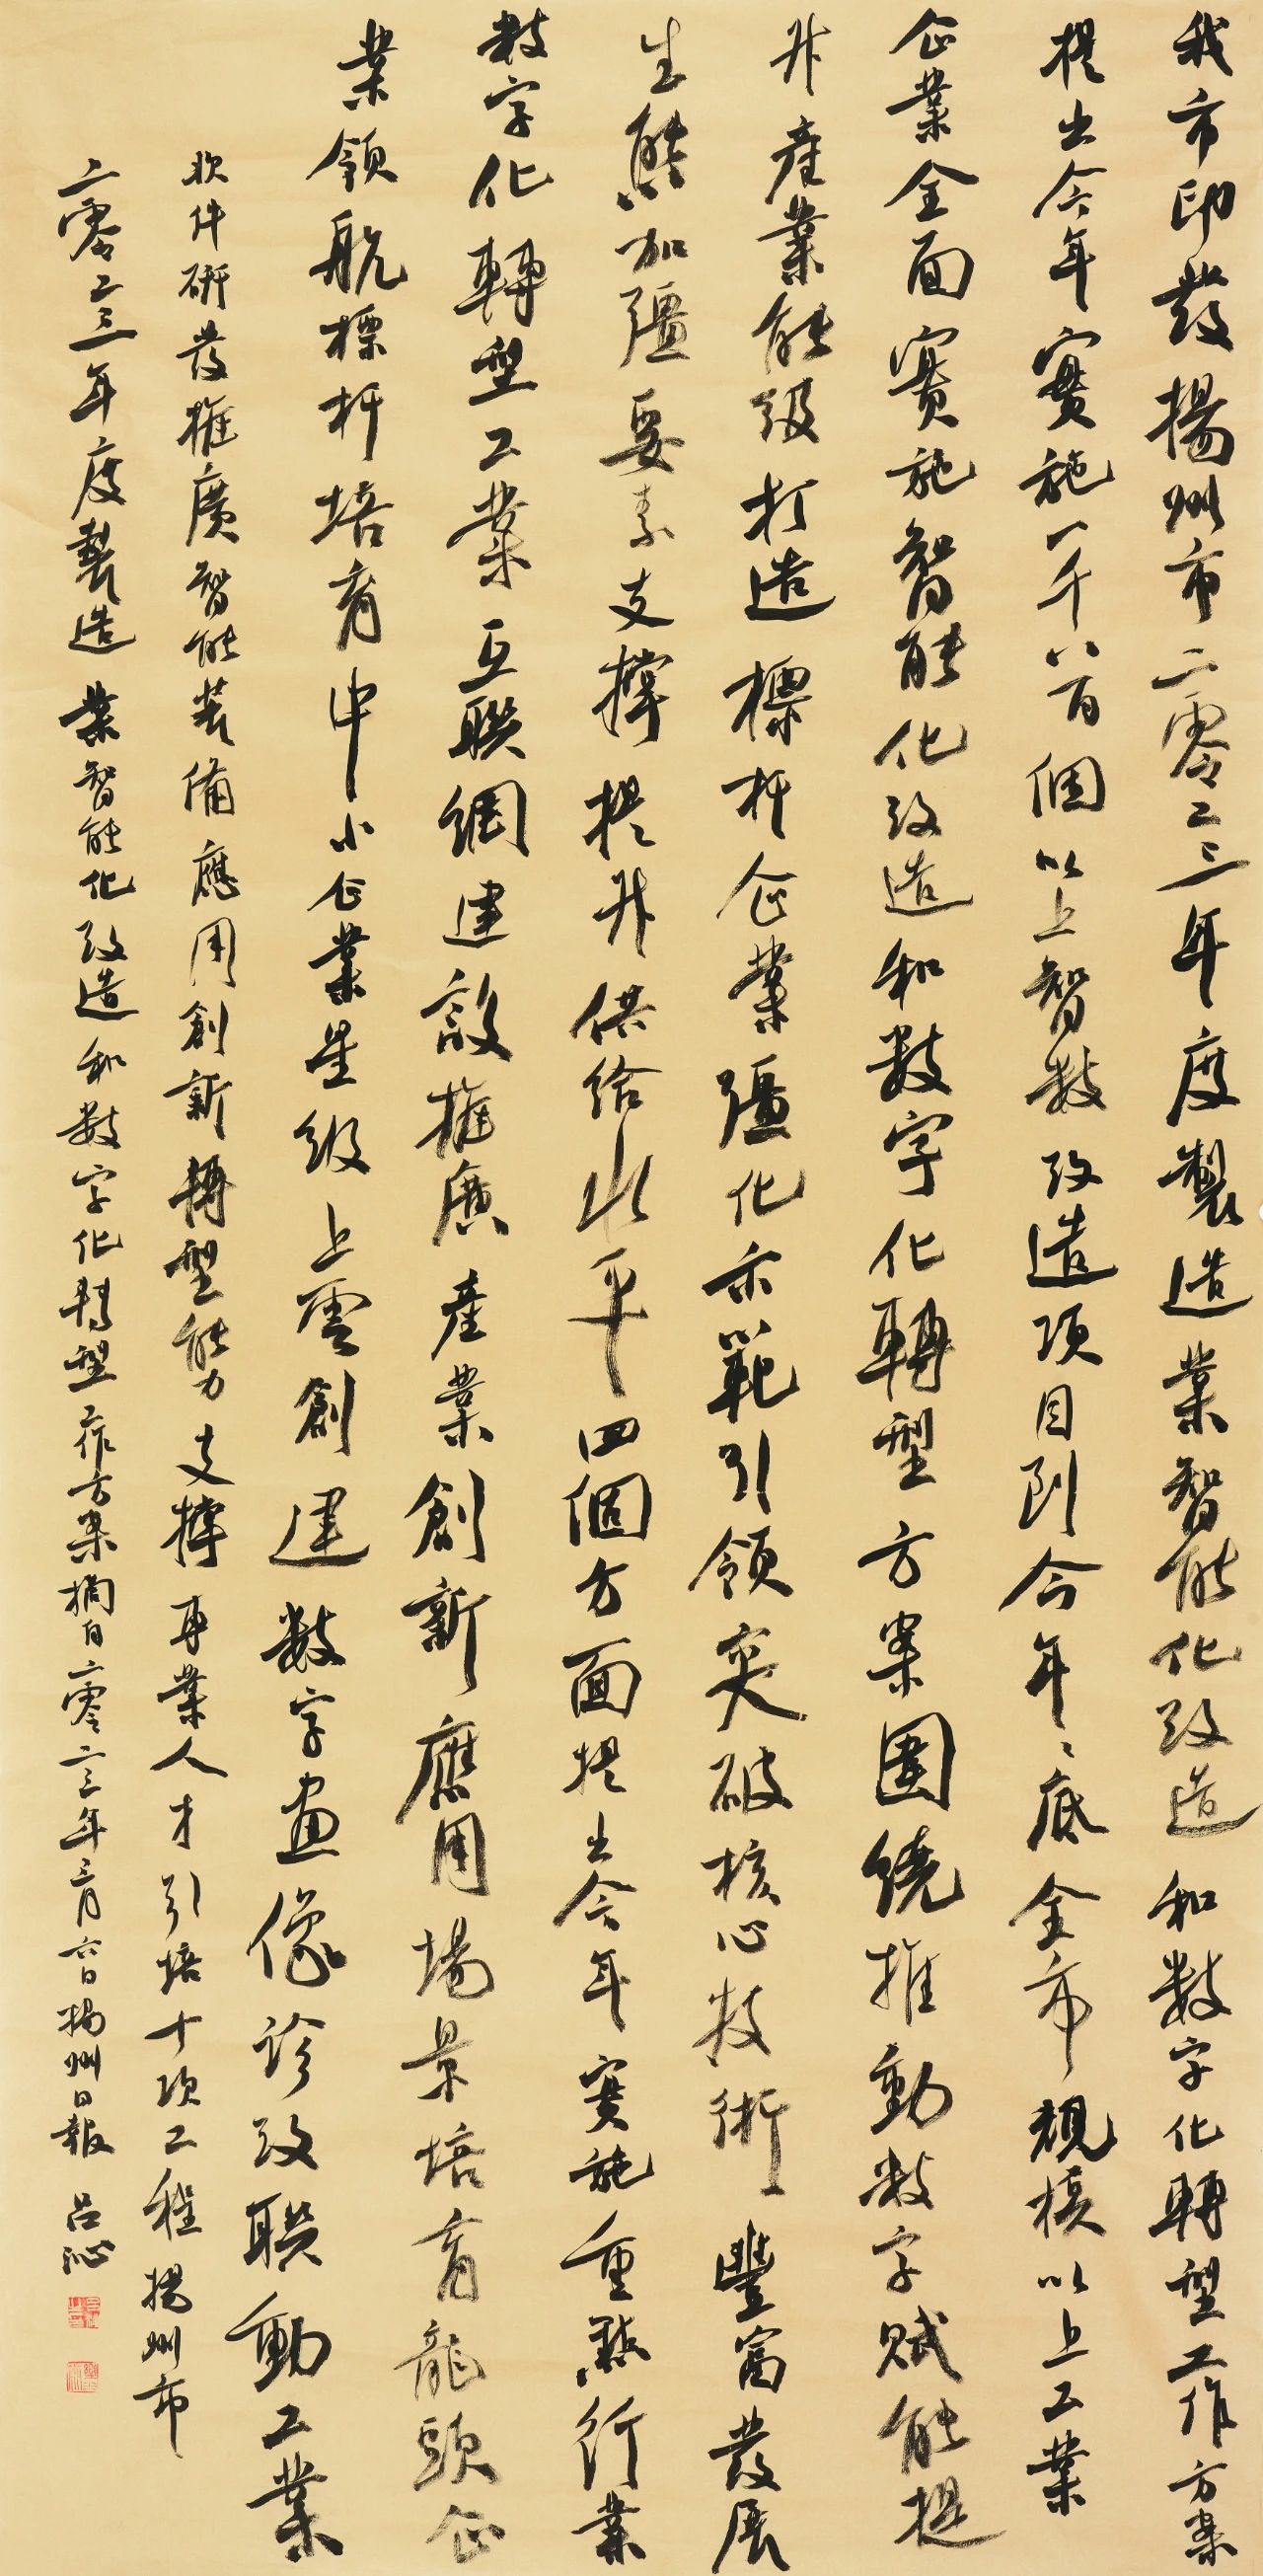 我市印發揚州市二零二三年度製造業智能化改造和數字化轉型工作方案
提出今年實施一千八百個以上智數改造項目到今年年底全市規模以上工業
企業全面實施智能化改造和數字化轉型方案圍繞推動數字賦能提
升產業能級打造標杆企業强化示範引領突破核心技術豐富發展
生態加强要素支撐提升供給水平四個方面提出今年實施重點行業
數字化轉型工業互聯網建設推廣產業創新應用場景培育龍頭企
業領航標杆培育中小企業星級上雲創建數字畫像診改聯動工業
軟件研發推廣智能裝備應用創新轉型能力支撐專業人才引培十項工程揚州市
二零二三年度製造業智能化改造和數字化轉型工作方案摘自二零二三年三月六日揚州日報 呂沁